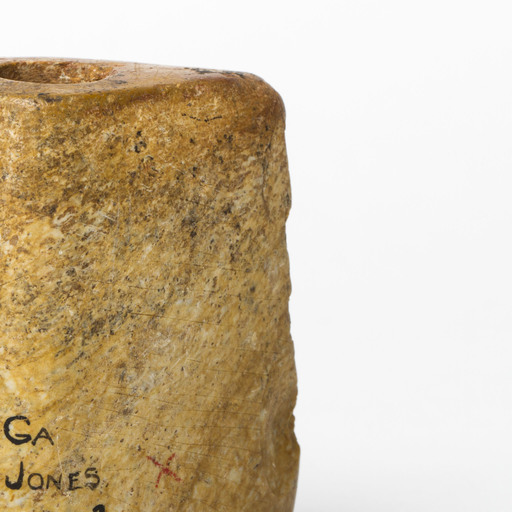 Ga
Jones